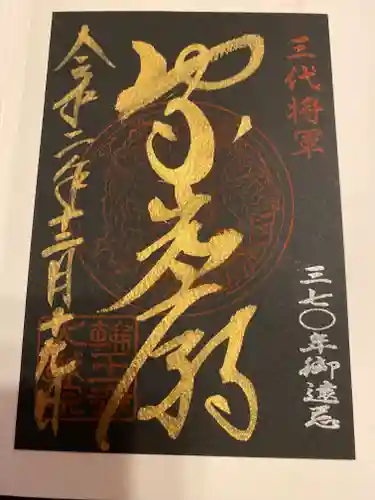 三代将軍
三七〇年御遠忌
家光廟
令和二年十二月十九日